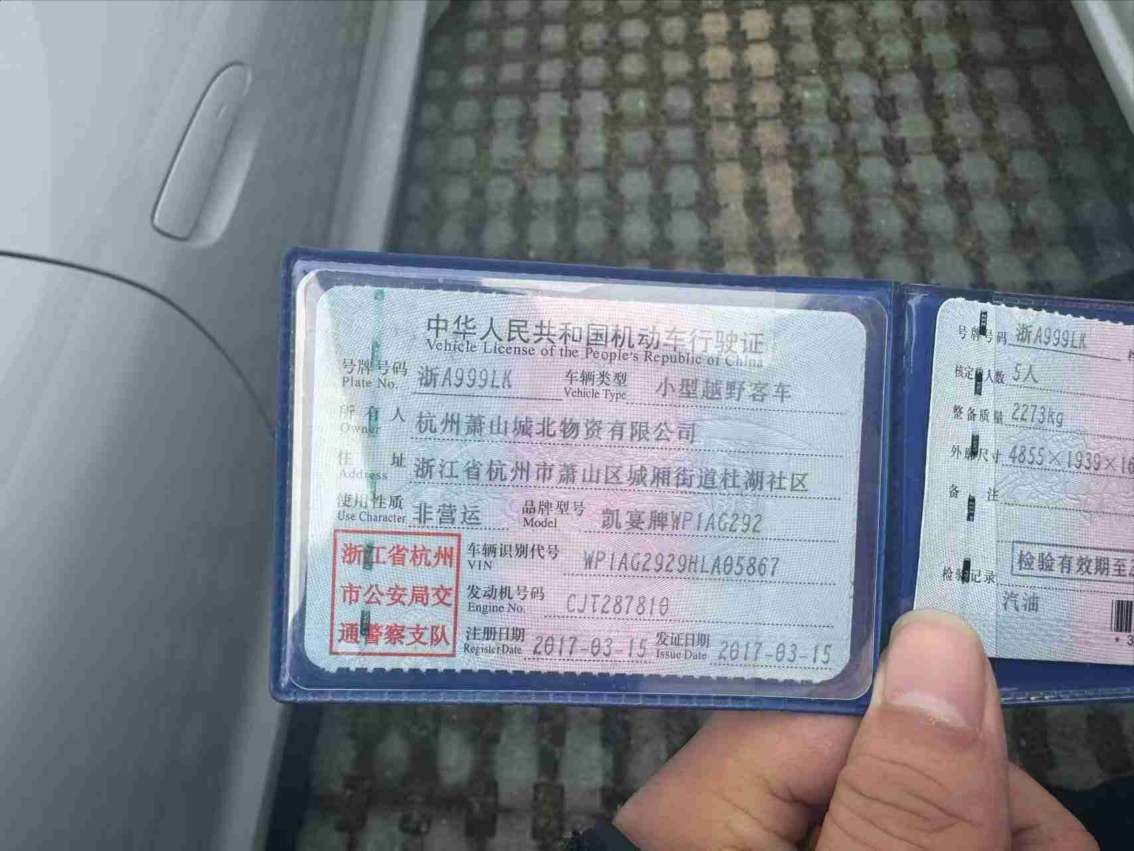 中华人民共和国机动车行驶证
Vehicle License of the People's Republic of China
号牌号码 浙A999LK 车辆类型 小型越野客车
Plate No. Vehicle Type
所有人 杭州萧山城北物资有限公司
Owner
住址 浙江省杭州市萧山区城厢街道杜湖社区
Address
使用性质 非营运 品牌型号 凯宴牌WP1AG292
Use Character Model
浙江省杭州
市公安局交
通警察支队
车辆识别代号 WP1AG2929HLA05867
VIN
发动机号码 CJT287810
Engine No.
注册日期 2017-03-15 发证日期 2017-03-15
Register Date Issue Date
号牌号码 浙A999LK
核定人数 5人
整备质量 2273kg
外廓尺寸 4855×1939×16
备注
检验有效期至2
检验记录
汽油
*3